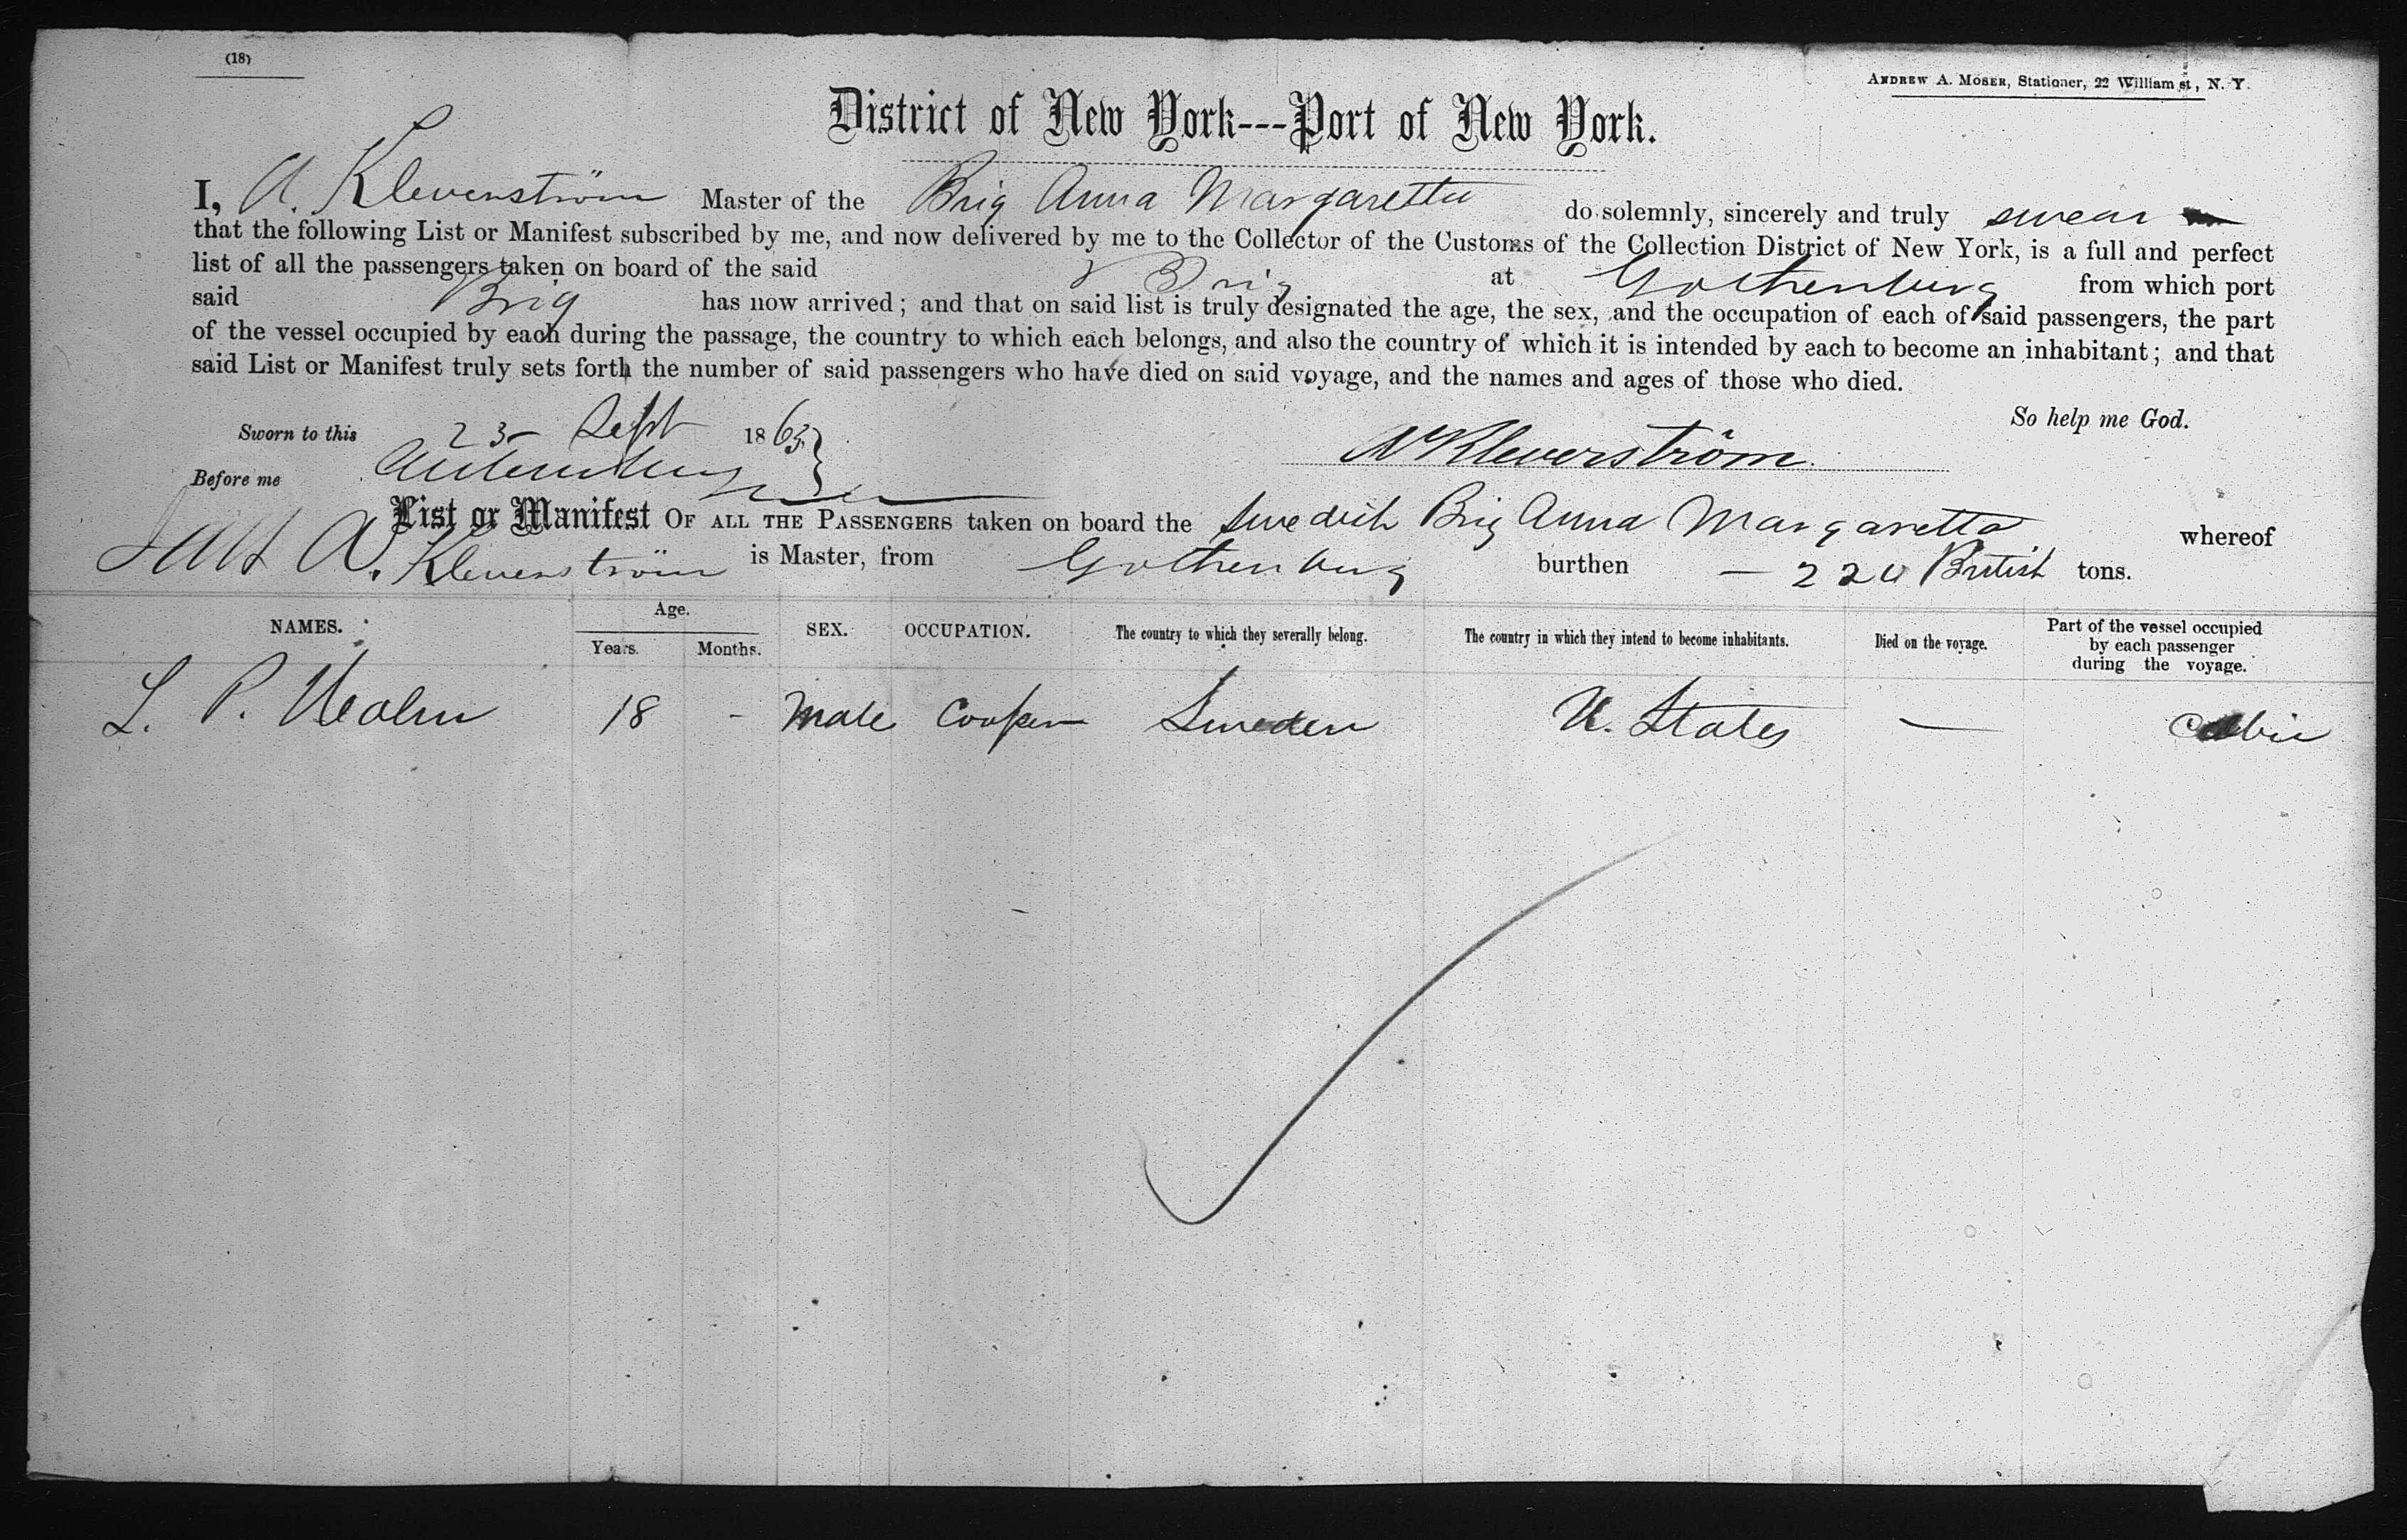 (18)
ANDREW A. MOSER, Stationer, 22 William st, N. Y.
District of New York---Port of New York.
I, A. Kleverström Master of the Brig Anna Margaretta do solemnly, sincerely and truly swear
that the following List or Manifest subscribed by me, and now delivered by me to the Collector of the Customs of the Collection District of New York, is a full and perfect
list of all the passengers taken on board of the said Brig at Gothenburg from which port
said Brig has now arrived; and that on said list is truly designated the age, the sex, and the occupation of each of said passengers, the part
of the vessel occupied by each during the passage, the country to which each belongs, and also the country of which it is intended by each to become an inhabitant; and that
said List or Manifest truly sets forth the number of said passengers who have died on said voyage, and the names and ages of those who died.
So help me God.
Sworn to this 23- Sept 1863
A Kleverström
Before me
List or Manifest OF ALL THE PASSENGERS taken on board the Swedish Brig Anna Margaretta whereof
A. Kleverström is Master, from Gothenburg burthen - 220 British tons.
NAMES. Age. Years. Months. SEX. OCCUPATION. The country to which they severally belong. The country in which they intend to become inhabitants. Died on the voyage. Part of the vessel occupied by each passenger during the voyage.
L. P. 18 - Male Cooper Sweden U. States — Cabin